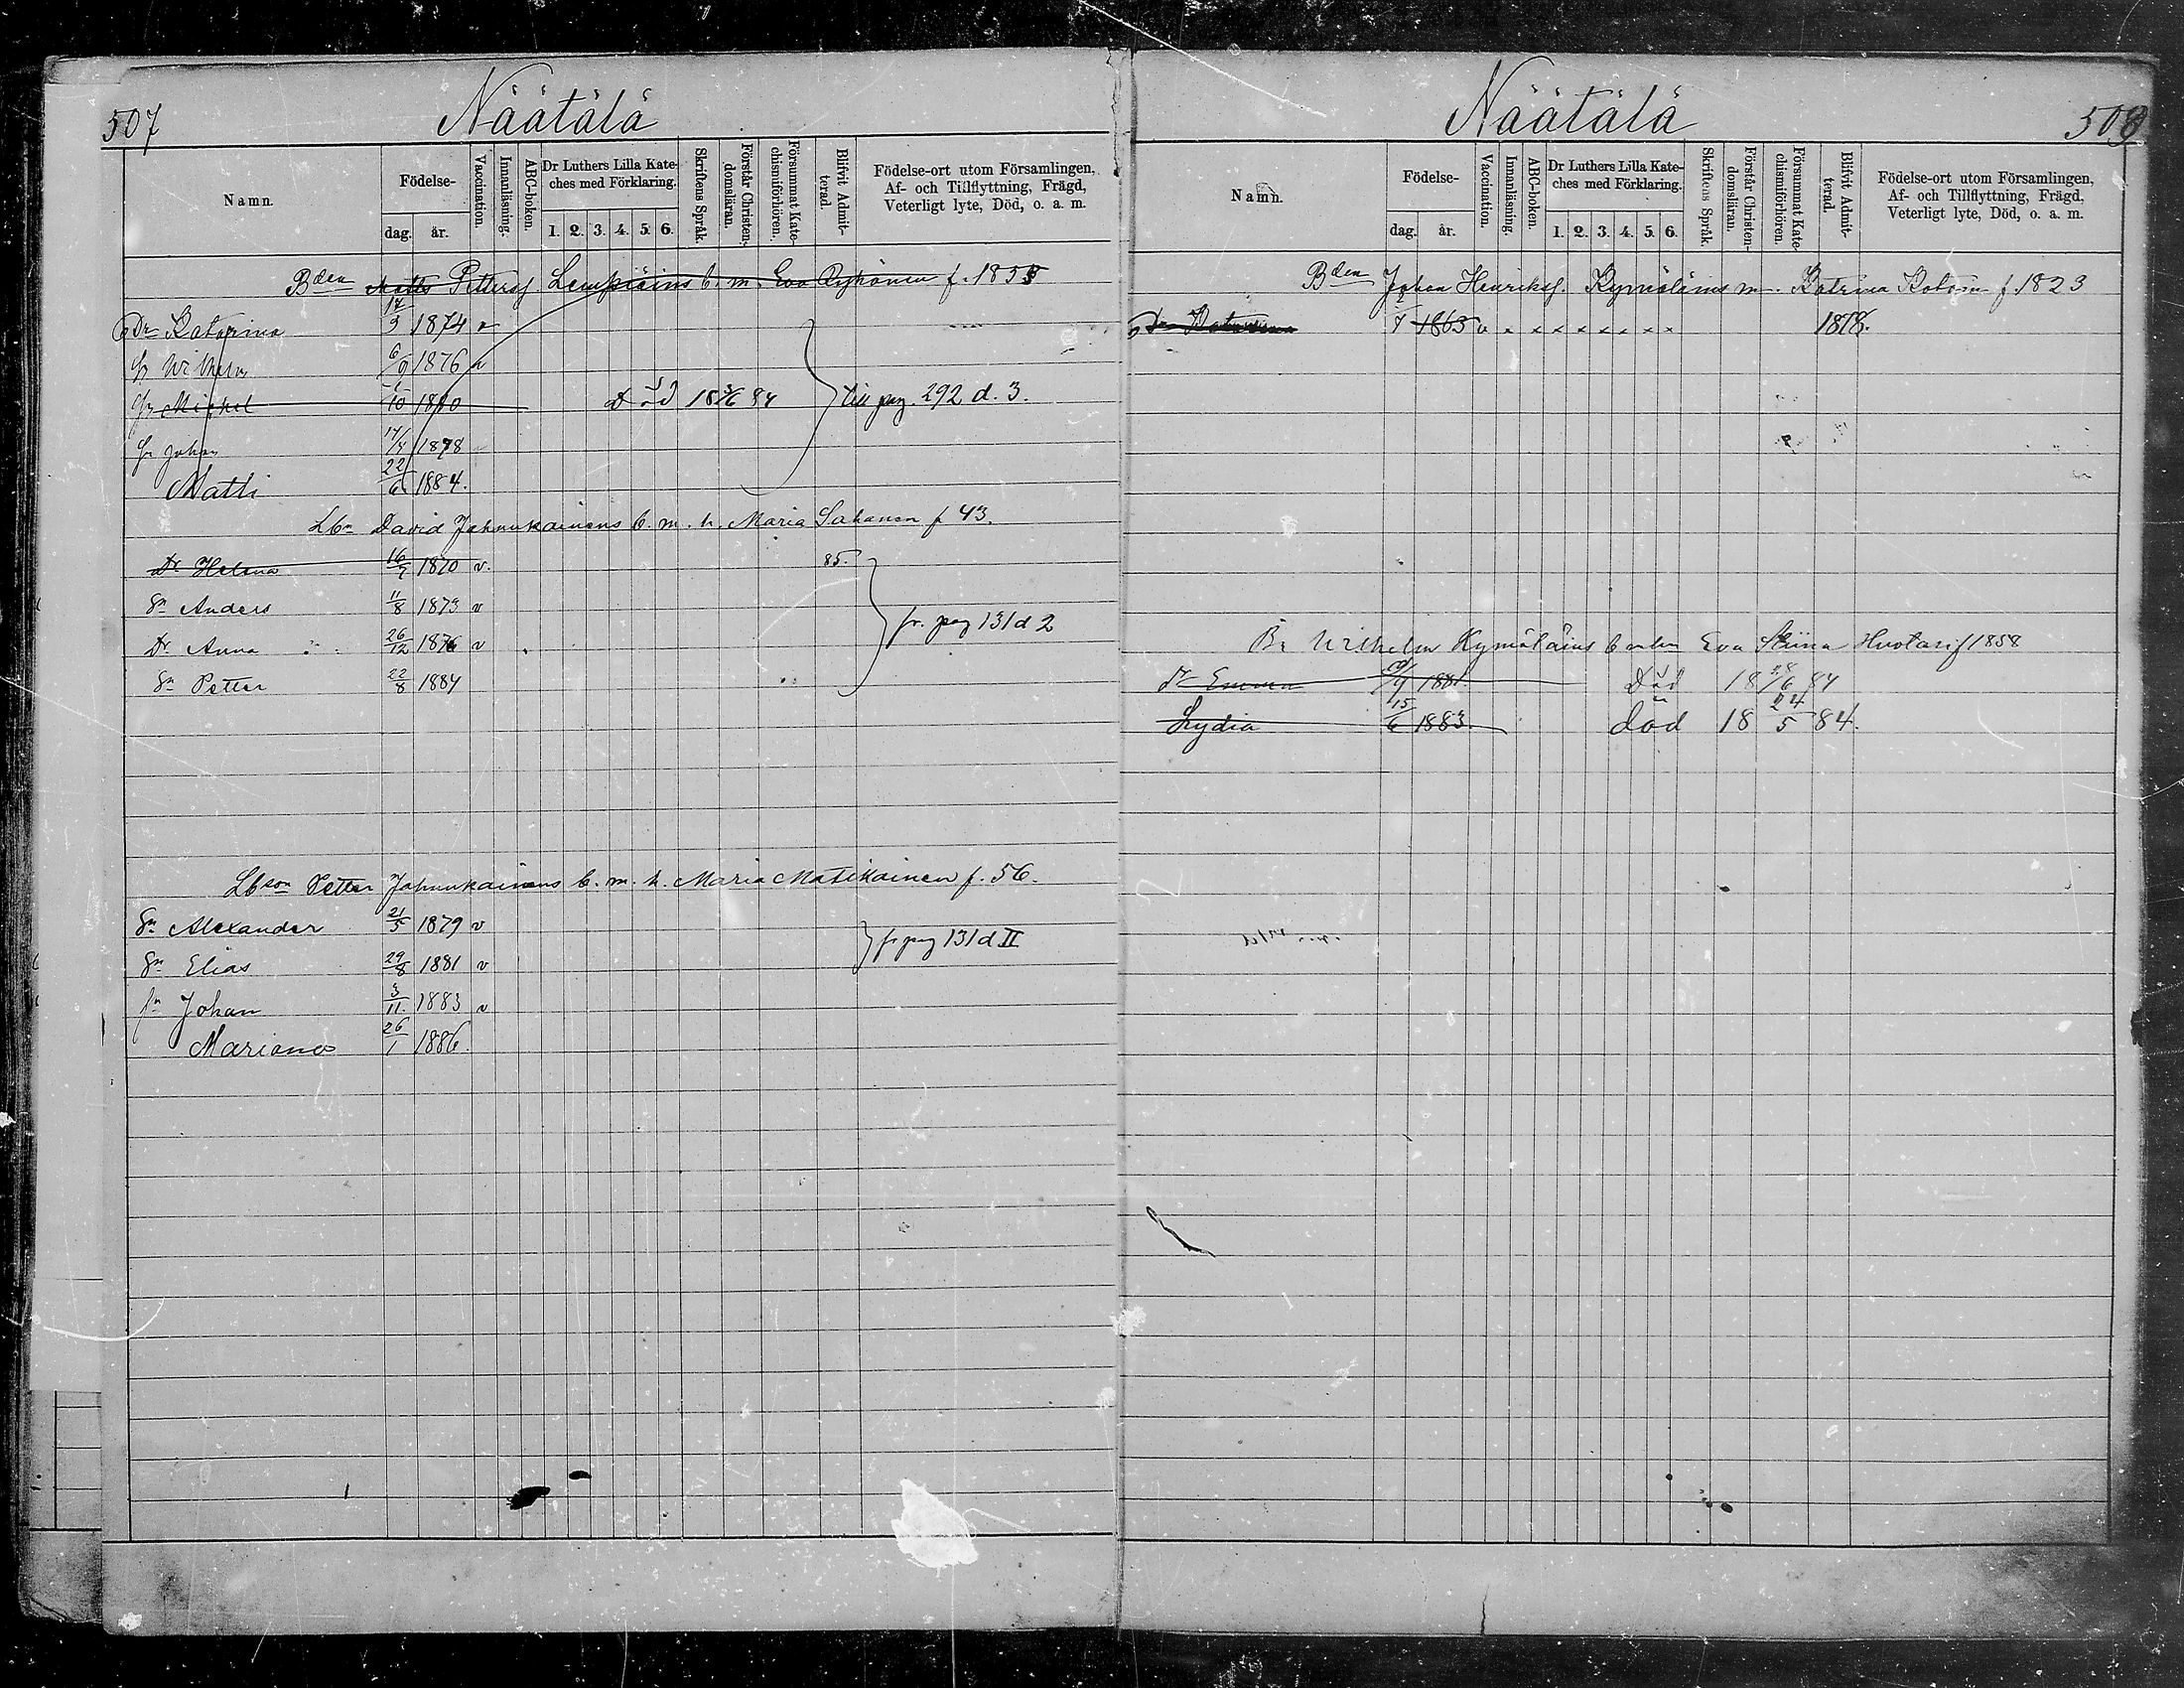 507
Näätälä
Namn.
Födelse-
dag.
år.
Vaccination.
Innanläsning.
ABC-boken.
Dr Luthers Lilla Kate-
ches med Förklaring.
1. 2. 3. 4. 5. 6.
Skriftens Språk.
Förstår Christen-
domsläran.
Försummat Kate-
chismiförhören.
Blifvit Admit-
terad.
Födelse-ort utom Församlingen,
Af- och Tillflyttning, Frägd,
Veterligt lyte, Död, o. a. m.
Bden Matts Petterss. Lempiäins b. m. Eva f. 1855
Dr Katarina 17/3 1874 v
Sn Wilhelm 6/9 1876 v
Sn Mickel /10 1880 Död 18 3/6 84 till pag. 292 d. 3.
Sn Johan 17/4 1878
Matti 22/6 1884.
Lbn David Jahnukainens b. m. h. Maria Sahanen f 43.
Dr Helena 16/7 1870 v. 85.
Sn Anders 11/8 1873 v
fr. pag 131 d 2
Dr Anna 26/12 1876 v
Sn Petter 22/8 1884
Lbson Petter Jahnukainens b. m. h. Maria Matikainen f. 56.
Sn Alexander 21/5 1879 v
fr pag 131 d II
Sn Elias 29/8 1881 v
Sn Johan 3/11. 1883 v
Mariana 26/1 1886.
Näätälä
508
Namn.
Födelse-
dag.
år.
Vaccination.
Innanläsning.
ABC-boken.
Dr Luthers Lilla Kate-
ches med Förklaring.
1. 2. 3. 4. 5. 6.
Skriftens Språk.
Förstår Christen-
domsläran.
Försummat Kate-
chismiförhören.
Blifvit Admit-
terad.
Födelse-ort utom Församlingen,
Af- och Tillflyttning, Frägd,
Veterligt lyte, Död, o. a. m.
Bden Johan Henrikss. Kymäläins m. Katrina f. 1823
Dr Katarina 1863 v x x x x x x x x 1878.
Br Wilhelm Kymäläins b Eva Stiina Huotari f 1858
Dr Emma /9 1881. Död 18 28/6 84
Lydia 15/6 1883. död 18 24/5 84.